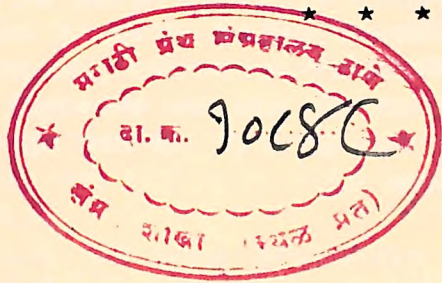 ★ ★ ★
मराठी ग्रंथ संग्रहालय ठाणे
दा. क्र. १०८४८
शाखा (स्थळ प्रत)